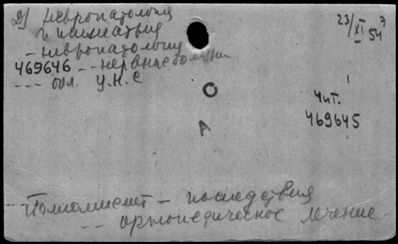 2) Невропатология
и психиатрия
23/XI 54
- невропатология
469646 -- нервные болезни
--- бол. ц.н.с
Чит.
469645
О
А
Полиомиелит - последствия
-- ортопедическое лечение